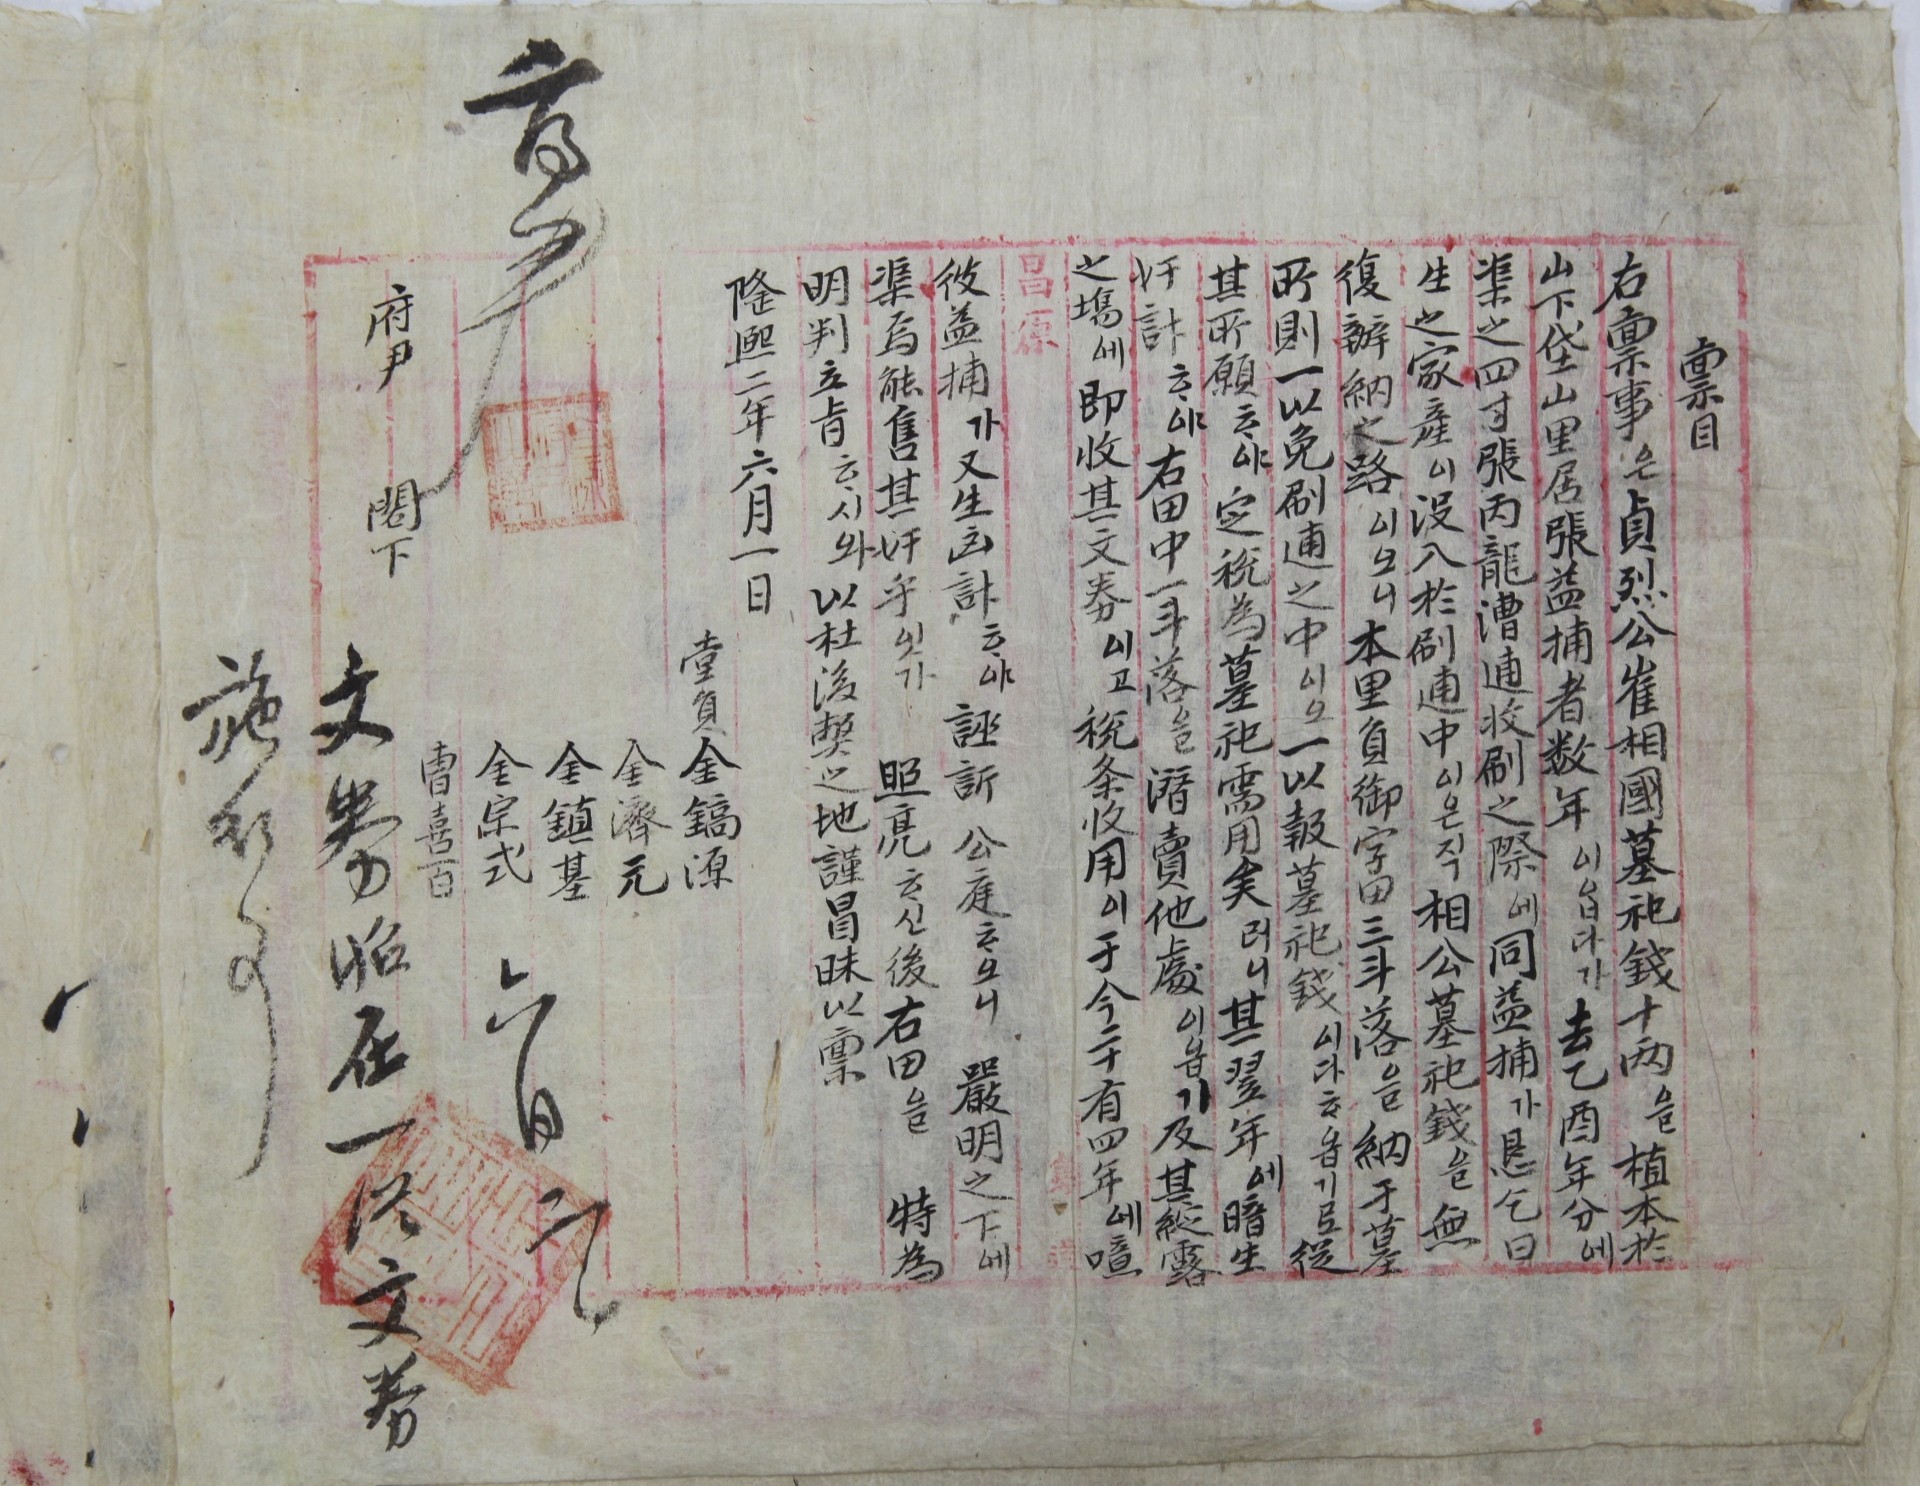 稟目
右稟事은貞烈公崔相國墓祀錢十兩을植本於
山下垈山里居張益捕者数年이ᄋᆞᆸ다가去乙酉年分에
渠之四寸張丙龍漕逋收刷之際에同益捕가恳乞曰
生之家産이沒入於刷逋中이온직相公墓祀錢을無
復辦納之路이오니本里負御字田三斗落을納于墓
所則一以免刷逋之中이오一以報墓祀錢이다ᄒᆞᄋᆞᆸ기로從
其所願ᄒᆞ야定税為墓祀需用矣러니其翌年에暗生
奸計ᄒᆞ야右田中一斗落을潛賣他處이ᄋᆞᆸ기及其綻露
之塲에即收其文券이고税条收用이于今二十有四年에噫
昌原
彼益捕가又生凶計ᄒᆞ야誣訴 公庭ᄒᆞ오니 嚴明之下에
渠焉能售其奸乎잇가 照亮ᄒᆞ신後右田을 特為
明判立旨ᄒᆞ시와以杜後獘之地謹冒昧以稟
隆熙二年六月一日
堂負金鎬源
金濟元
金鎮基
金宗式
曺喜百
府尹 閣下
文券昭在一從文券
施行事